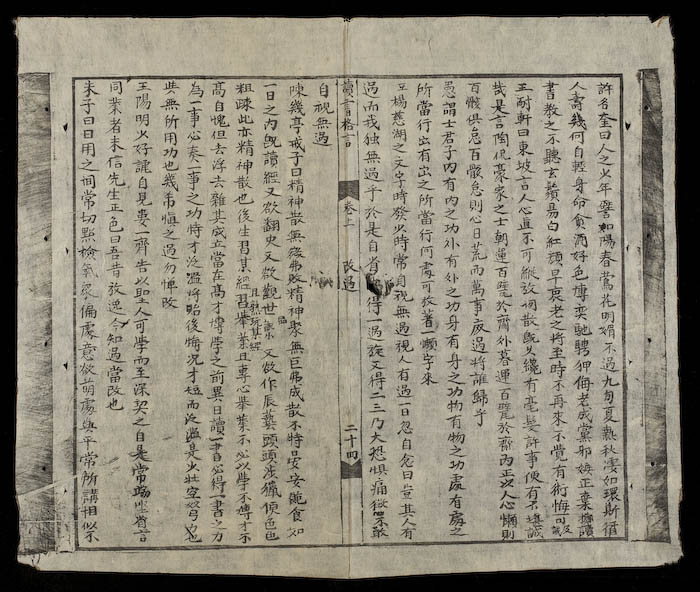 許名奎曰人之少年譬如陽春鶯花明媚不過九旬夏熱秋凄如環斯循
人壽幾何自輕身命貪酒好色博奕馳騁狎侮老成黨邪嫉正棄擲詩
書教之不聽玄鬢易白紅顔早衰老之將至時不再來不覺有術悔可及哉
王耐軒曰東坡言人心真不可縱放閒散既久纔有毫髮許事便有不堪誠
哉是言陶侃豪家之士朝運百甓於齋外暮運百甓於齋内正以人心懶則
百骸俱怠百骸怠則心日荒而萬事廢過將誰歸乎
愚謂士君子内有内之功外有外之功身有身之功物有物之功處有處之
所當行出有出之所當行何處可放著一懶字來
楊慈湖之文字時發少時常自視無過視人有過一日忽自念曰豈其人有
過而我独無過乎於是自省得一過旋又得二三乃大恐懼痛懲敢
讀書格言 卷上 改過 二十四
自視無過
陳幾亭戒子曰精神散無微弗敗精神聚無巨弗成散不特晏安食如
一日之内既讀經又欲翻史又欲觀世又欲作辰藝頭頭涉獵色色
粗疎此亦精神散也後生習某經習舉業且專心舉業不必以學不博才不
高自愧但去浮去雜其成立當在高才博學之前異日讀一書必得一書之力
為一事必奏一事之功恃才泛濫將貽後悔况才短而泛濫是少壮空努力
與無所用功也幾希慎之過勿憚改
王陽明少好謔自見婁一齊告以聖人可學而至深契之自是常端坐省言
同業者未信先生正色曰吾昔放逸今知過當改也
朱子曰日用之間常切點檢氣象偏處意欲萌處與平常所講相似不